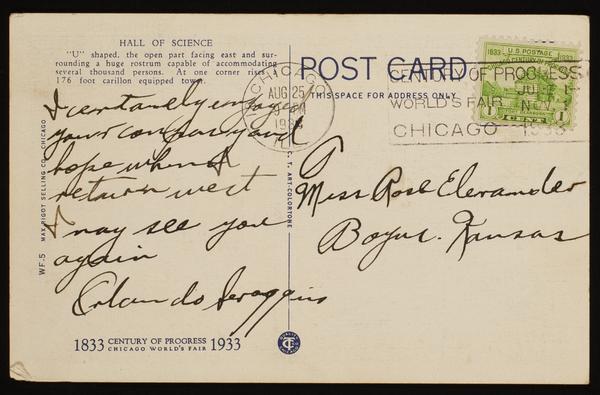 HALL OF SCIENCE
"U" shaped, the open part facing east and sur-
rounding a huge rostrum capable of accommodating
several thousand persons. At one corner rises a
176 foot carillon equipped tower.
I certanely enjoyed
your company and
hope when I
return west
I may see you
again
Orlando Scroggins
1833 CENTURY OF PROGRESS 1933
CHICAGO WORLD'S FAIR
WF-5 MAX RIGOT SELLING CO., CHICAGO
C. T. ART-COLORTONE
POST CARD
THIS SPACE FOR ADDRESS ONLY
CHICAGO
AUG 25
1933
ILL
CENTURY OF PROGRESS
JUNE 1
WORLD'S FAIR NOV 1
CHICAGO 1933
1833 U.S. POSTAGE 1933
CHICAGO CENTURY OF PROGRESS
1 1
Miss Rose
Kansas